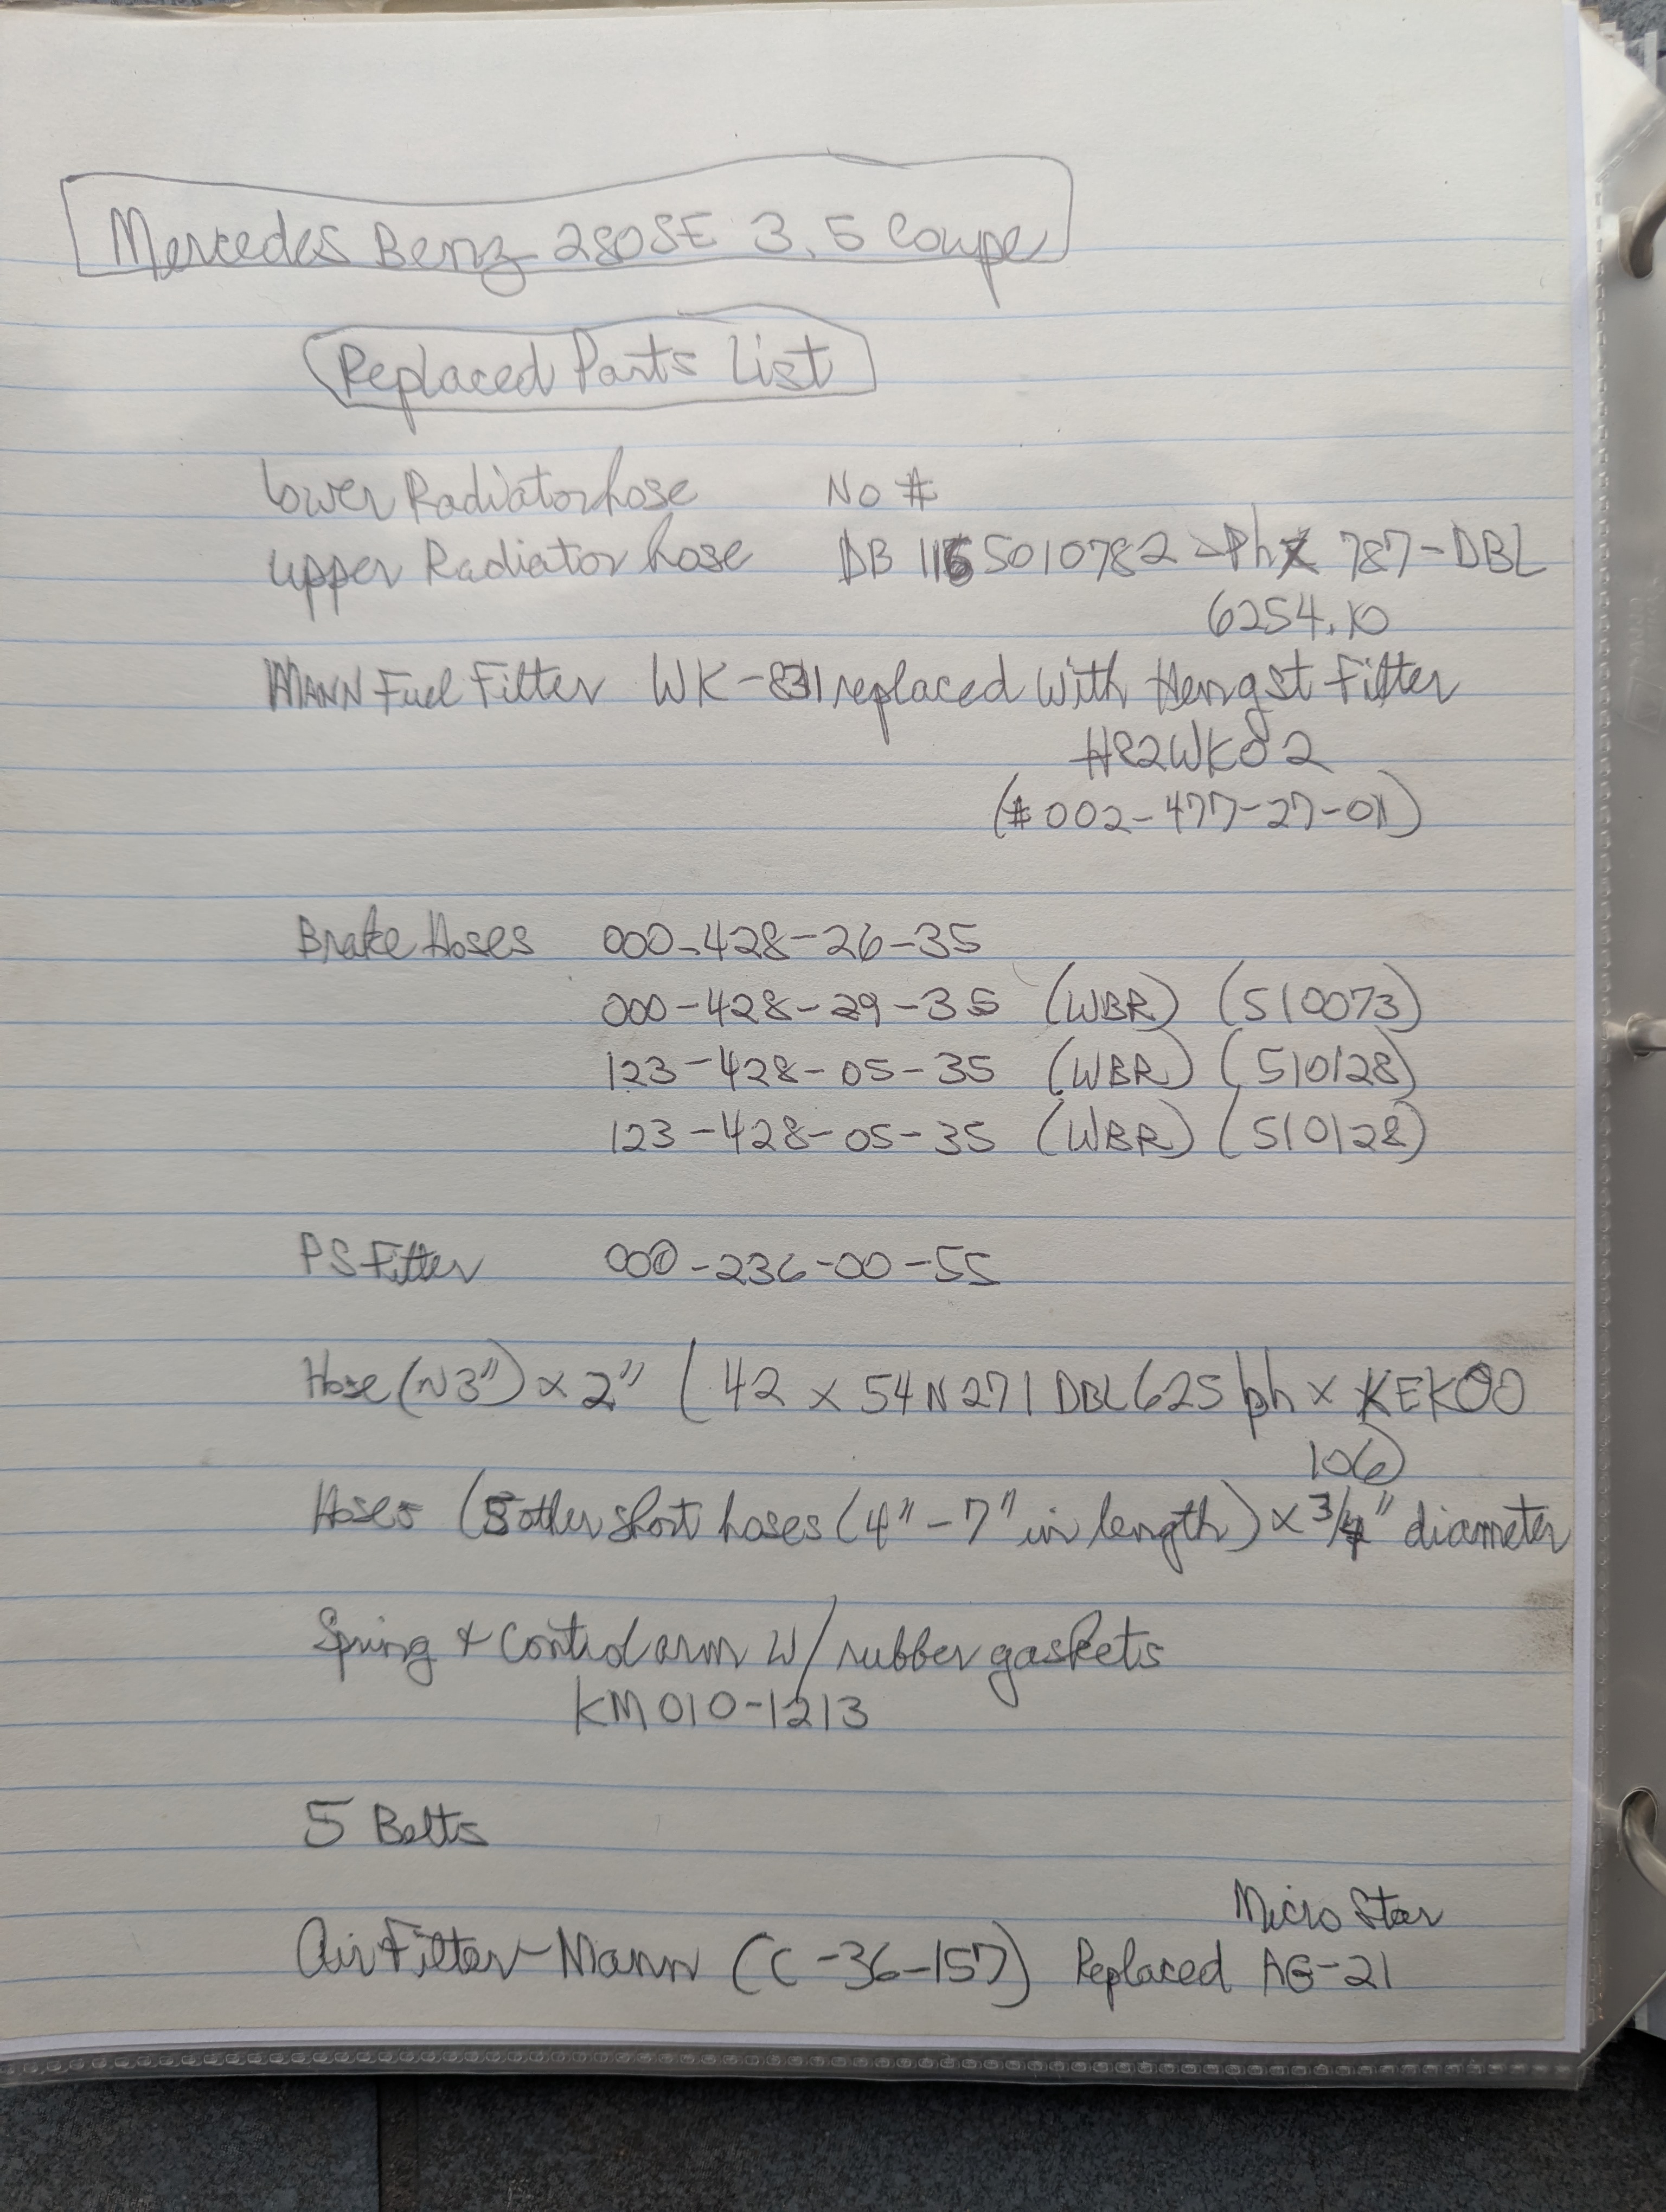 Mercedes Benz 280SE 3.5 Coupe
Replaced Parts List
Lower Radiator hose No #
Upper Radiator hose DB 1165010782 - Phx 787-DBL
6254.10
MANN Fuel Filter WK-831 replaced with Hengst Filter
H82WK02
(#002-477-27-01)
Brake Hoses 000-428-26-35
000-428-29-35 (WBR) (510073)
123-428-05-35 (WBR) (510128)
123-428-05-35 (WBR) (510128)
PS Filter 000-236-00-55
Hose (~3") x 2" (42 x 54N271 DBL625 ph x KEK00
106)
Hoses (5 other short hoses (4"-7" in length) x 3/4" diameter
Spring + Control arm w/ rubber gaskets
KM010-1213
5 Belts
Micro Star
Air Filter - Mann (C-36-157) Replaced AG-21